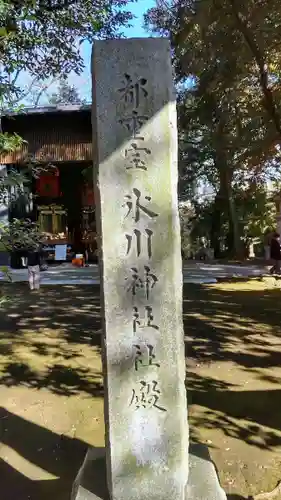 都重宝氷川神社社殿